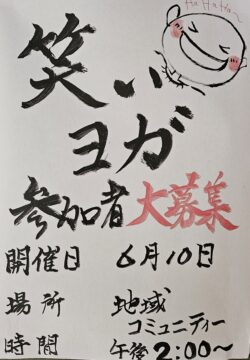 Ha Ha Ha~
笑い
ヨガ
参加者大募集
開催日 6月10日
場所 地域
コミュニティー
時間 午後2:00~